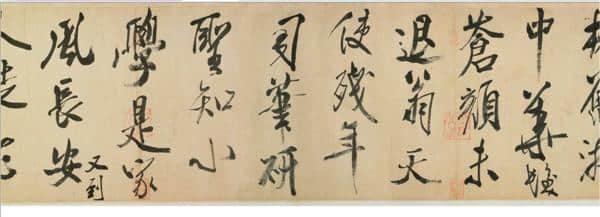 舊游
中華髮
蒼顏未
退翁天
使殘年
司筆研
聖知小
學是家
風長安
又到
人徒